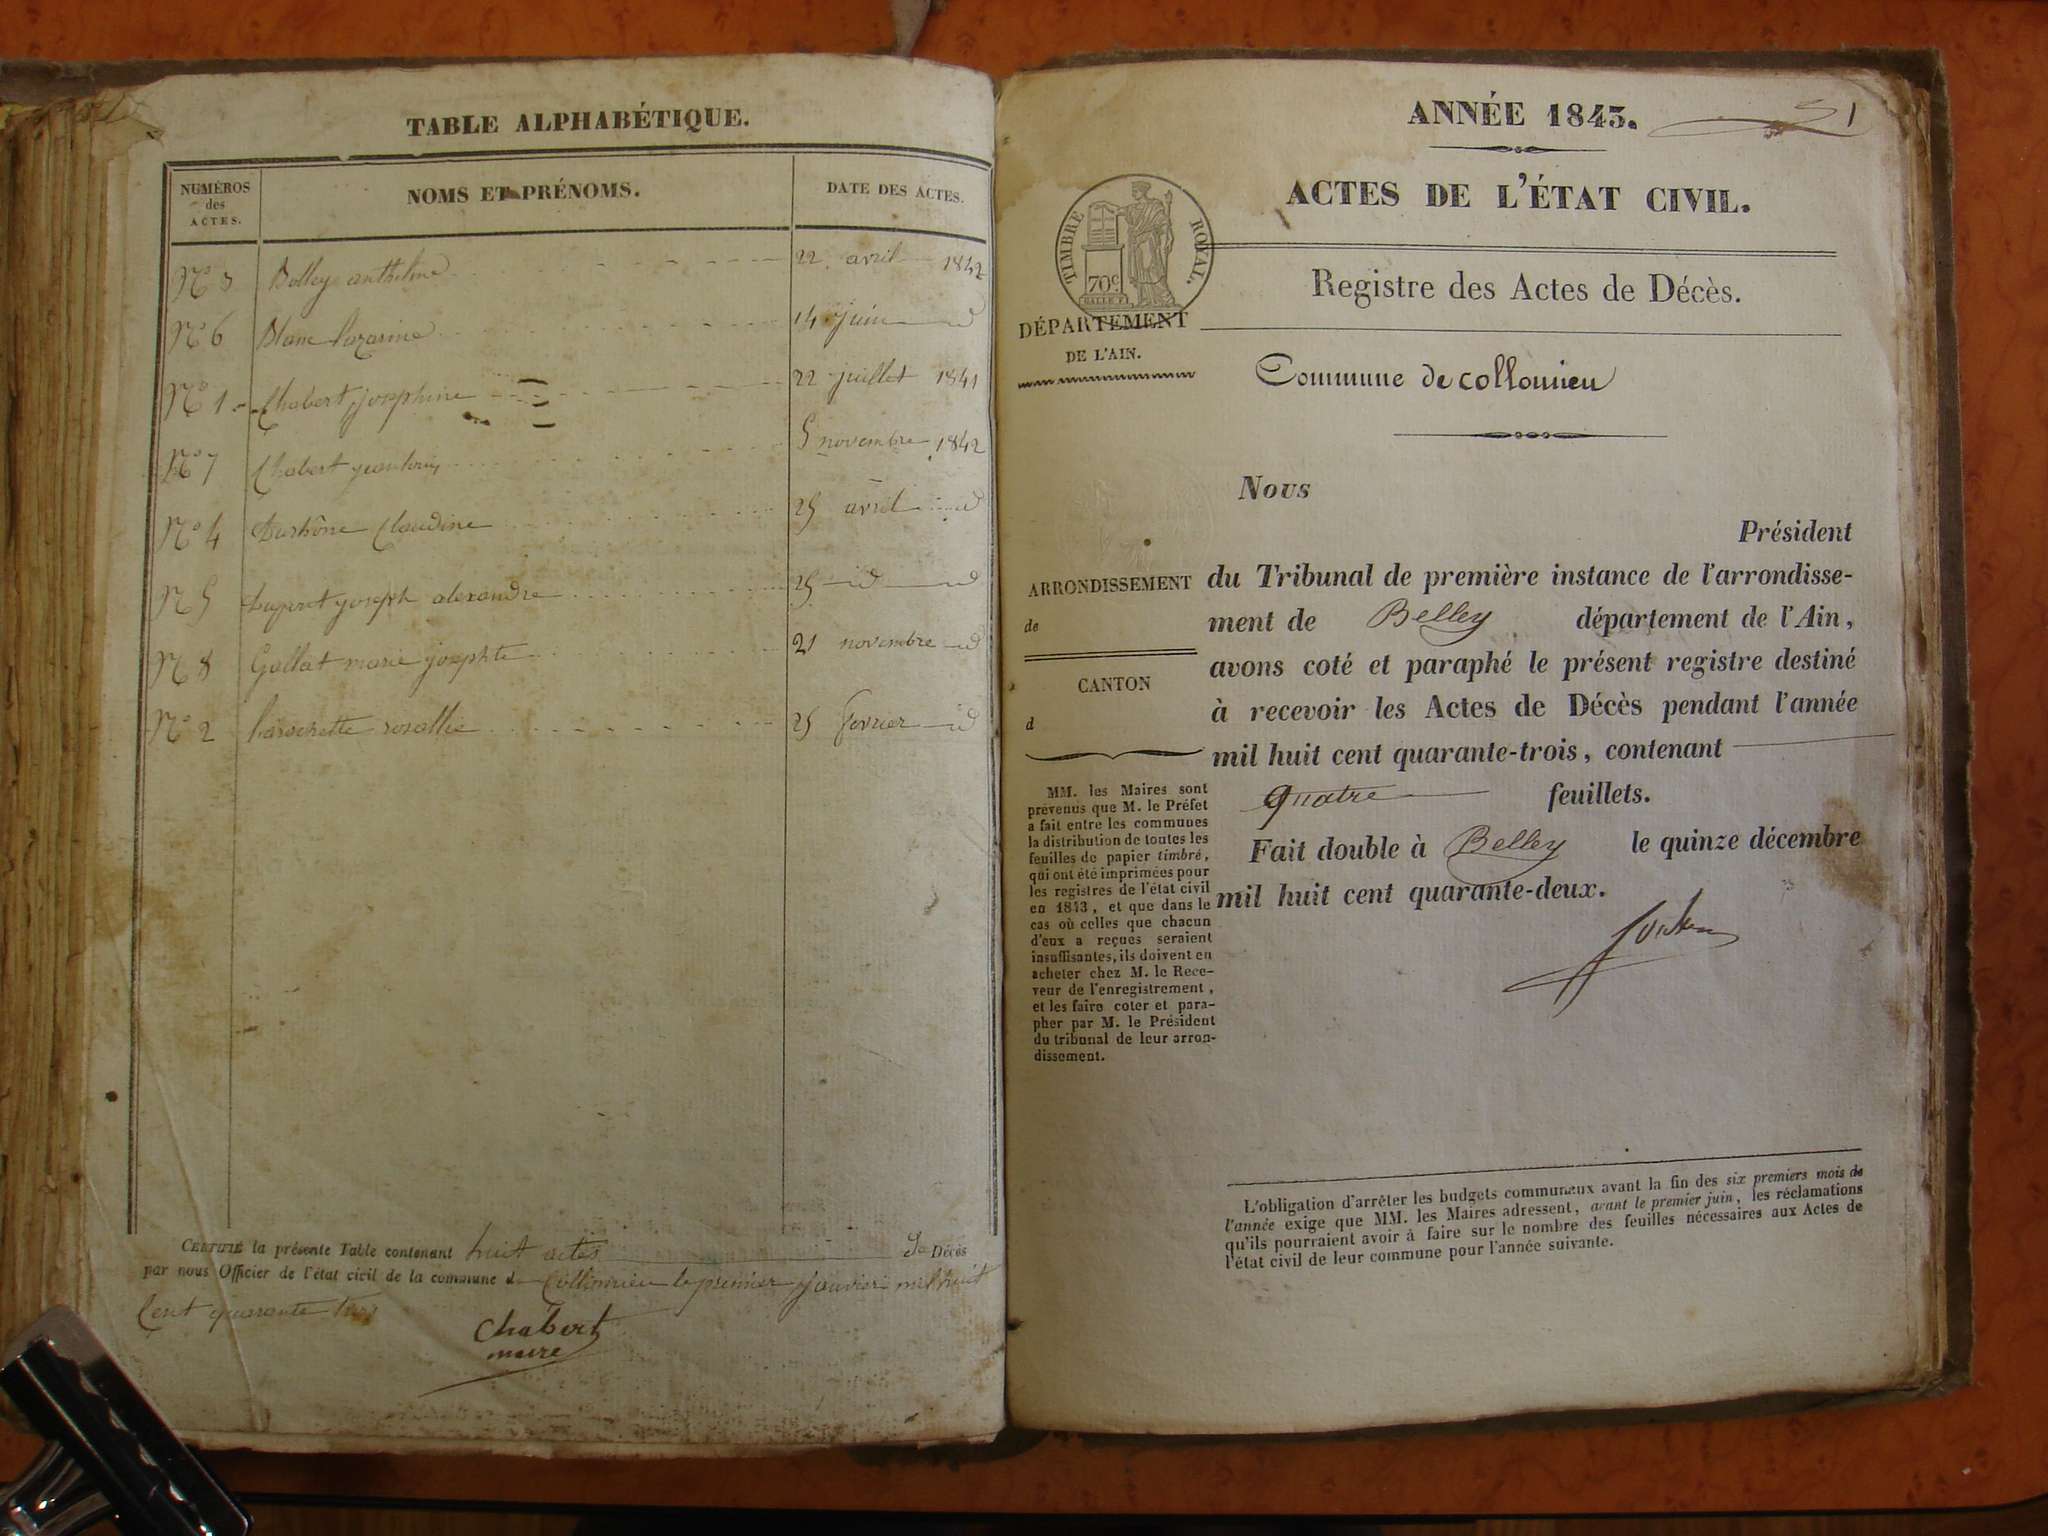 TABLE ALPHABÉTIQUE.
NUMÉROS
des
ACTES.
NOMS ET PRÉNOMS.
DATE DES ACTES.
N° 3 Bolley anthelme 22 avril 1842
N° 6 Blanc lazarine 14 juin id
N° 1 Chabert josephine 22 juillet 1841
N° 7 Chabert jean louis 5 novembre 1842
N° 4 Claudine 25 avril id
N 5 joseph alexandre 25 id id
N 8 Gallat marie josephte 21 novembre id
N° 2 larochette rosallie 25 fevrier id
CERTIFIÉ la présente Table contenant huit actes de Décès
par nous Officier de l'état civil de la commune d Collomieu le premier janvier mil huit
Cent quarante trois
Chabert
maire
ANNÉE 1843.
1
ACTES DE L'ÉTAT CIVIL.
TIMBRE ROYAL.
70c
Registre des Actes de Décès.
DÉPARTEMENT
DE L'AIN.
Commune de collomieu
Nous
Président
ARRONDISSEMENT
de
CANTON
d
du Tribunal de première instance de l'arrondisse-
ment de Belley département de l'Ain,
avons coté et paraphé le présent registre destiné
à recevoir les Actes de Décès pendant l'année
mil huit cent quarante-trois, contenant
quatre feuillets.
Fait double à Belley le quinze décembre
mil huit cent quarante-deux.
MM. les Maires sont
prévenus que M. le Préfet
a fait entre les communes
la distribution de toutes les
feuilles de papier timbré,
qui ont été imprimées pour
les registres de l'état civil
en 1843, et que dans le
cas où celles que chacun
d'eux a reçues seraient
insuffisantes, ils doivent en
acheter chez M. le Rece-
veur de l'enregistrement,
et les faire coter et para-
pher par M. le Président
du tribunal de leur arron-
dissement.
L'obligation d'arrêter les budgets communaux avant la fin des six premiers mois de
l'année exige que MM. les Maires adressent, avant le premier juin, les réclamations
qu'ils pourraient avoir à faire sur le nombre des feuilles nécessaires aux Actes de
l'état civil de leur commune pour l'année suivante.